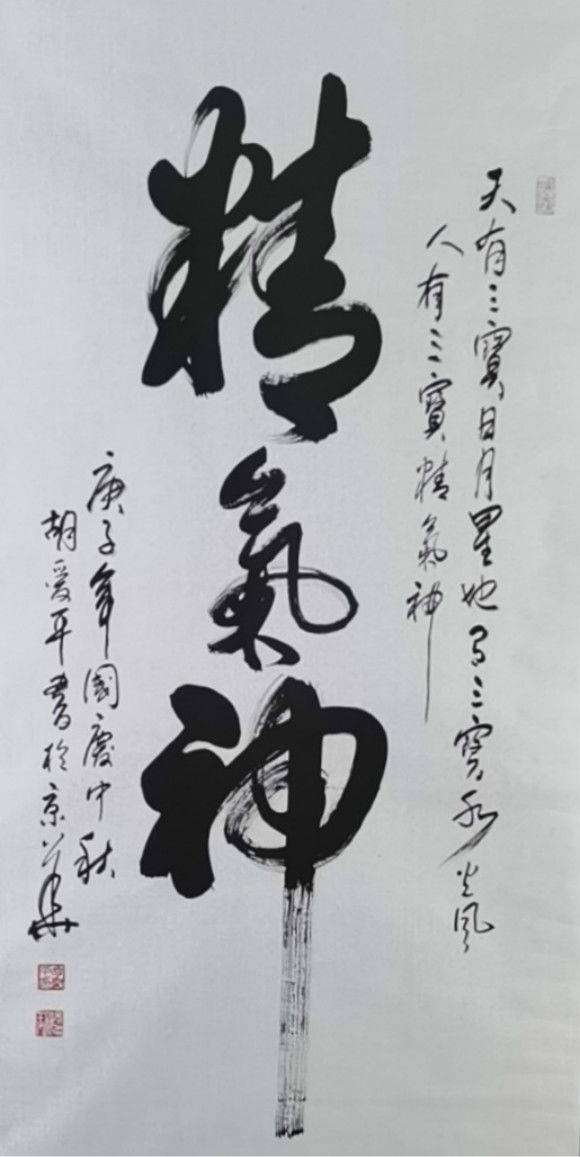 天有三寶日月星地有三寶水火風
人有三寶精氣神
精氣神
庚子年國慶中秋
胡愛平書於京華